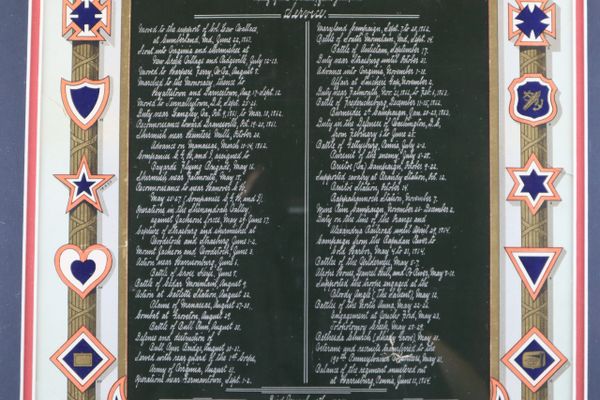 Service.
Moved to the support of Col. Lew Wallace,
at Cumberland, Md., June 22, 1861.
Scout into Virginia and skirmishes at
New Creek Village and Piedmont, July 12-13.
Moved to Harpers Ferry, W. Va., August
Marched to the Monocacy, thence to
Hyattstown and Darnestown, Aug. 17-Sept. 12.
Moved to Tennallytown, D.C., Sept. 25-26.
Duty near Langley, Va., Oct. 9, 1861, to Mar. 10, 1862.
Reconnoissance toward Dranesville, Oct. 19-21, 1861.
Skirmish near Hunters Mill, October 20.
Advance on Manassas, March 10-14, 1862.
Companies C, G, H, and I, assigned to
Bayards Flying Brigade, May 16.
Skirmish near Falmouth, May
Reconnoissance to near Hanover C.H.,
Operations in the Shenandoah Valley
against Jacksons forces, May 29-June 17.
Capture of Strasburg and skirmishes at
Woodstock and Strasburg, June 1-2.
Mount Jackson and Woodstock, June 3.
Action near Harrisonburg, June 6.
Battle of Cross Keys, June 8.
Battle of Cedar Mountain, August 9.
Action at Catletts Station, August 22.
Plains of Manassas, August 27-30.
Combat at Groveton, August 29.
Battle of Bull Run, August 30.
Defense and destruction of
Bull Run Bridge, August 30-31.
Served with rear guard of the 1st Corps,
Army of Virginia, August 31.
Operations near Germantown, Sept. 1-2.
Maryland Campaign, Sept. 7-20, 1862.
Battle of South Mountain, Md., Sept. 14.
Battle of Antietam, September 17.
Duty near Sharpsburg until October 31.
Advance into Virginia, November 1-22.
Affair at Amisens Gap, November 2.
Duty near Falmouth, Nov. 21, 1862, to Feb. 5, 1863.
Battle of Fredericksburg, December 11-15, 1862.
Burnsides 2nd Campaign, Jan. 20-23, 1863.
Duty in the Defenses of Washington, D.C.,
from February 5 to June 25.
Battle of Gettysburg, Penna., July 2-3.
Pursuit of the enemy, July 5-25.
Bristoe (Va.) Campaign, October 9-22.
Supported cavalry at Brandy Station, Oct. 12.
Bristoe Station, October 14.
Rappahannock Station, November 7.
Mine Run Campaign, November 26-December 2.
Duty on the line of the Orange and
Alexandria Railroad until April 29, 1864.
Campaign from the Rapidan River to
Cold Harbor, May 4 to 31, 1864.
Battles of the Wilderness, May 5-7.
Alsops House, Laurel Hill, and Po River, May 7-12.
Supported the troops engaged at the
Bloody Angle (The Salient), May 12.
Battles of the North Anna, May 22-26.
Engagement at Jericho Ford, May 23.
Totopotomoy Creek, May 28-29.
Bethesda Church (Shady Grove), May 30.
Veterans and recruits transferred to the
190th Pennsylvania Volunteers, May 31.
Balance of the regiment mustered out
at Harrisburg, Penna., June 11, 1864.